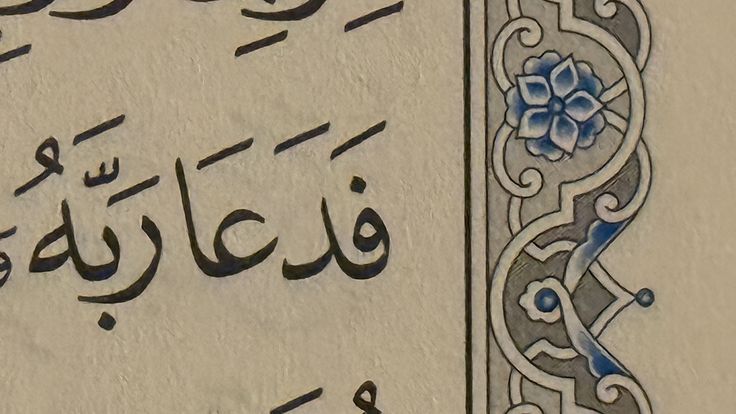 فَدَعَا رَبَّهُ